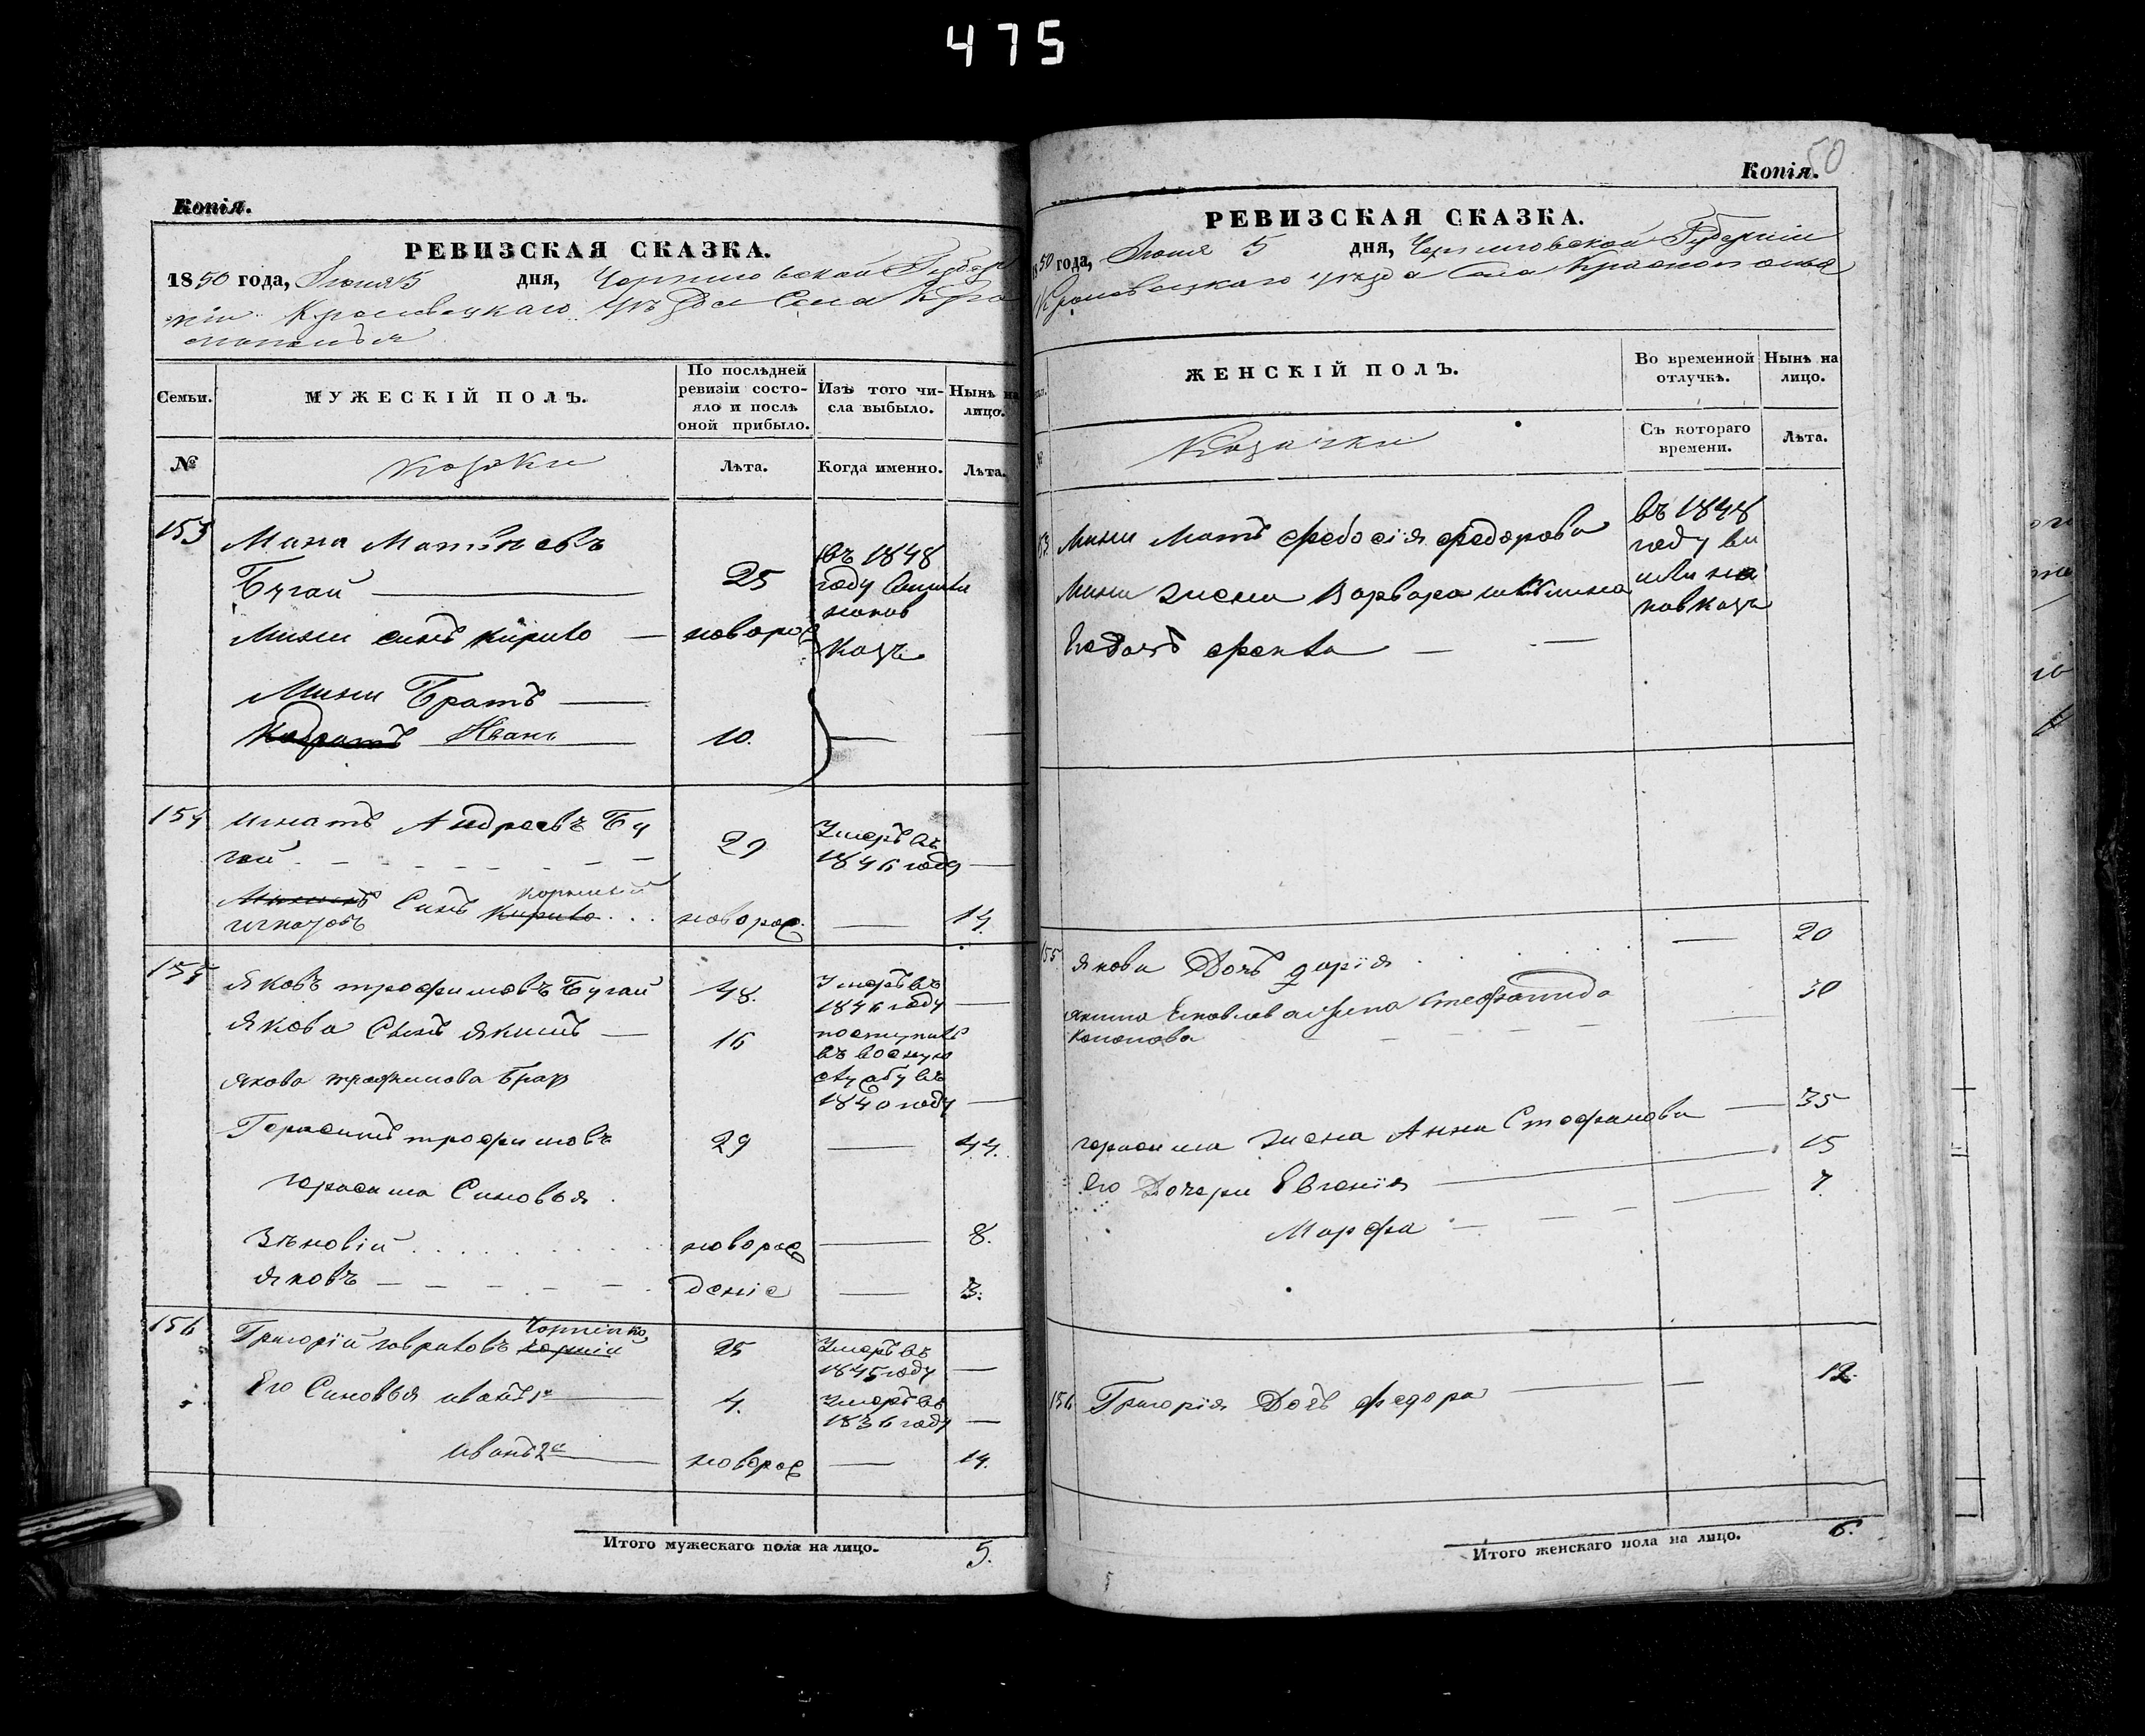 475
Копія.
РЕВИЗСКАЯ СКАЗКА.
1850 года, Июня 5 дня, Черниговской Губер
ніи Кролевецкаго уѣзда Села Кра
снополья
Семьи.
МУЖЕСКІЙ ПОЛЪ.
По послѣдней ревизіи состо-яло и послѣ оной прибыло.
Изъ того чи-сла выбыло.
Нынѣ на лицо.
№
Козаки
Лѣта.
Когда именно.
Лѣта.
153
Мина Матвѣевъ
Бугай 25
въ 1848
году
Мини синъ Кирило новорож
Мини Братъ
Иванъ 10.
154 Игнатъ Андреевъ Бу
гай 29 Умеръ въ
1846 году
Игнатовъ Синъ Корнилій новорож. 14.
155 Яковъ трофимовъ Бугай 48. Умеръ въ
1846 году
Якова Сынъ Якимъ 16 поступилъ
въ воєную
службу въ
1840 году
Якова трофимова Брат
Герасимъ трофимовъ 29 44.
герасима Синовья
Зѣновій новорож 8.
Яковъ деніе 3.
156 Григорій гавриловъ Чорненко 25 Умеръ въ
1845 году
Его Синовья иванъ 1й 4. Умеръ въ
1836 году
иванъ 2й новорож 14.
Итого мужескаго пола на лицо. 5.
50
Копія.
РЕВИЗСКАЯ СКАЗКА.
1850 года, Июня 5 дня, Черниговской Губерніи
Кролевецкаго уѣзда Села Краснополья
ЖЕНСКІЙ ПОЛЪ.
Во временной отлучкѣ.
Нынѣ на лицо.
№
Козачки
Съ котораго времени.
Лѣта.
153 Мини Мать Феодосія Федорова въ 1848
году ви
Мини жена Варвара
Его Дочь Фекла
155 Якова Дочь Дарія 20
Якима Яковлева жина Стефанида 30
Кононова
герасима жена Анна Стефанова 35
его Дочери Евгенія 15
Марфа 7
156 Григорія Дочъ Федора 12.
Итого женскаго пола на лицо. 6.